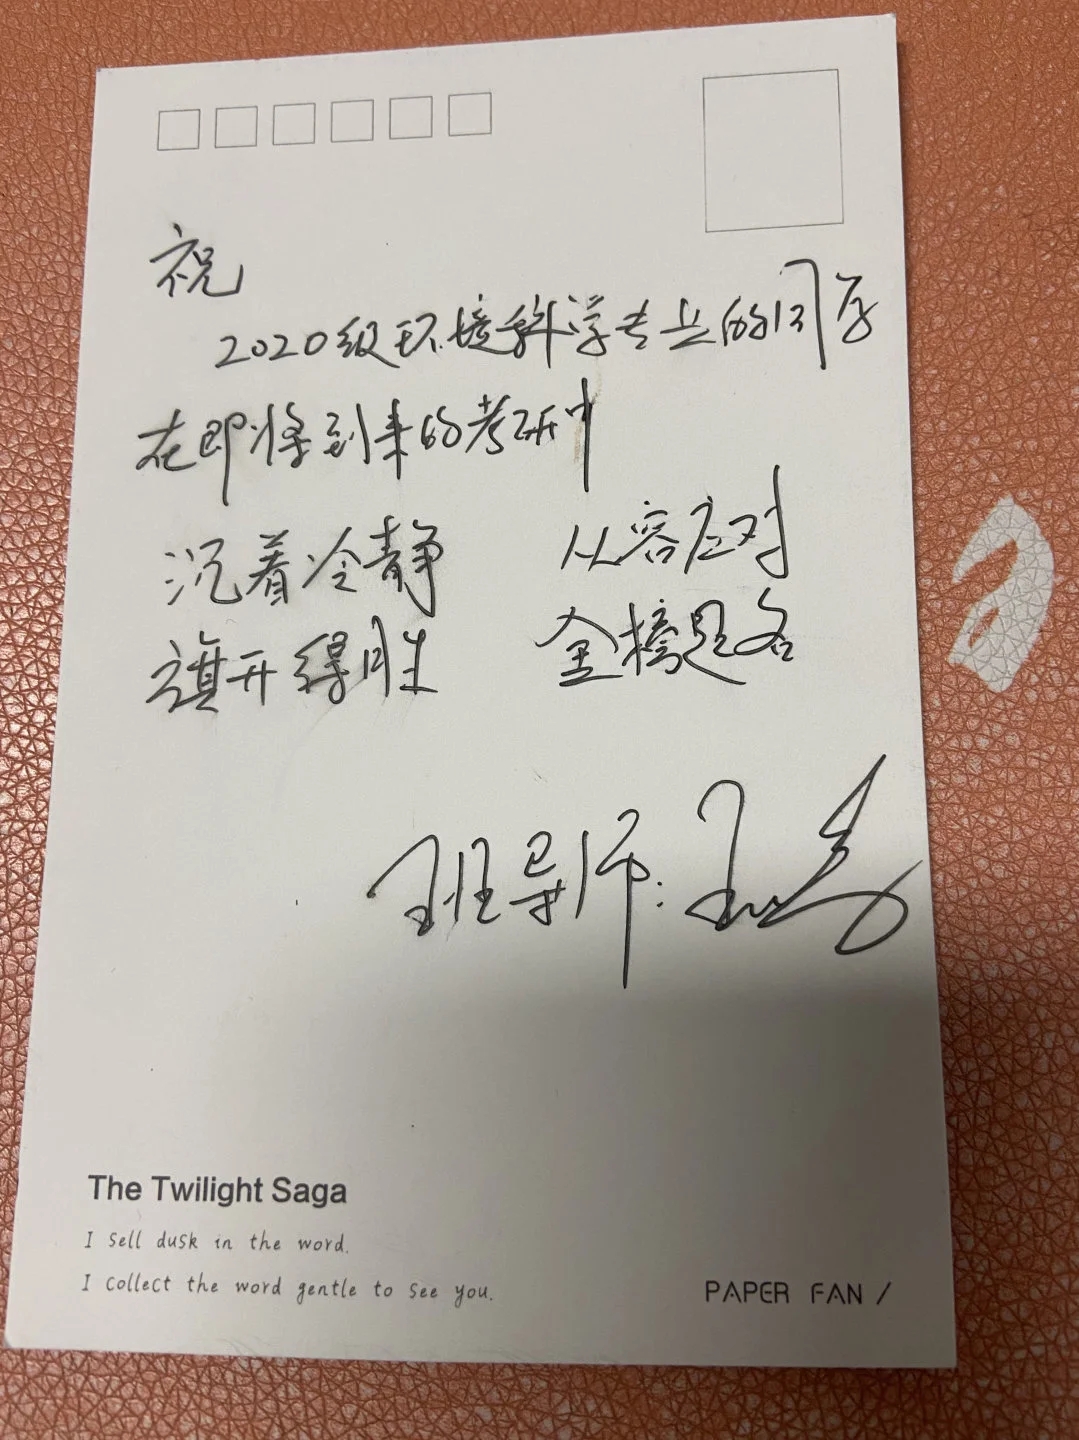 祝
2020级环境科学专业的同学
在即将到来的考研中
沉着冷静 从容应对
旗开得胜 金榜题名
班导师:
The Twilight Saga
I sell dusk in the word.
I collect the word gentle to see you.
PAPER FAN /